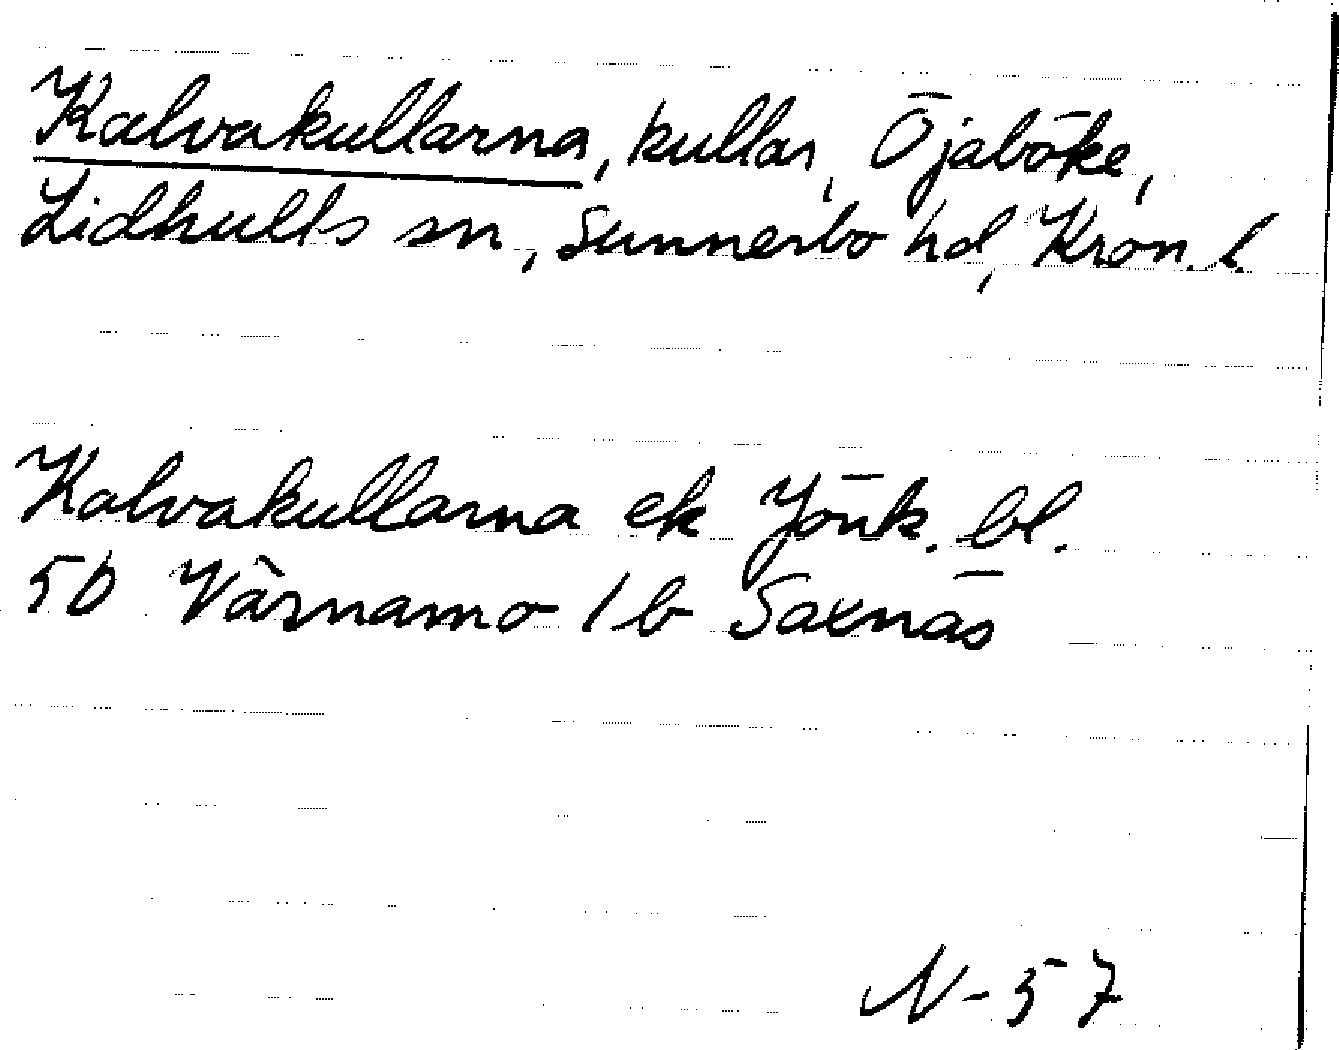 Kalvakullarna, kullar, Öjaböke,
Lidhults sn, Sunnerbo hd, Kron. l.
Kalvakullarna ek Jönk. bl.
5D Värnamo 1b Saxnäs
N-57